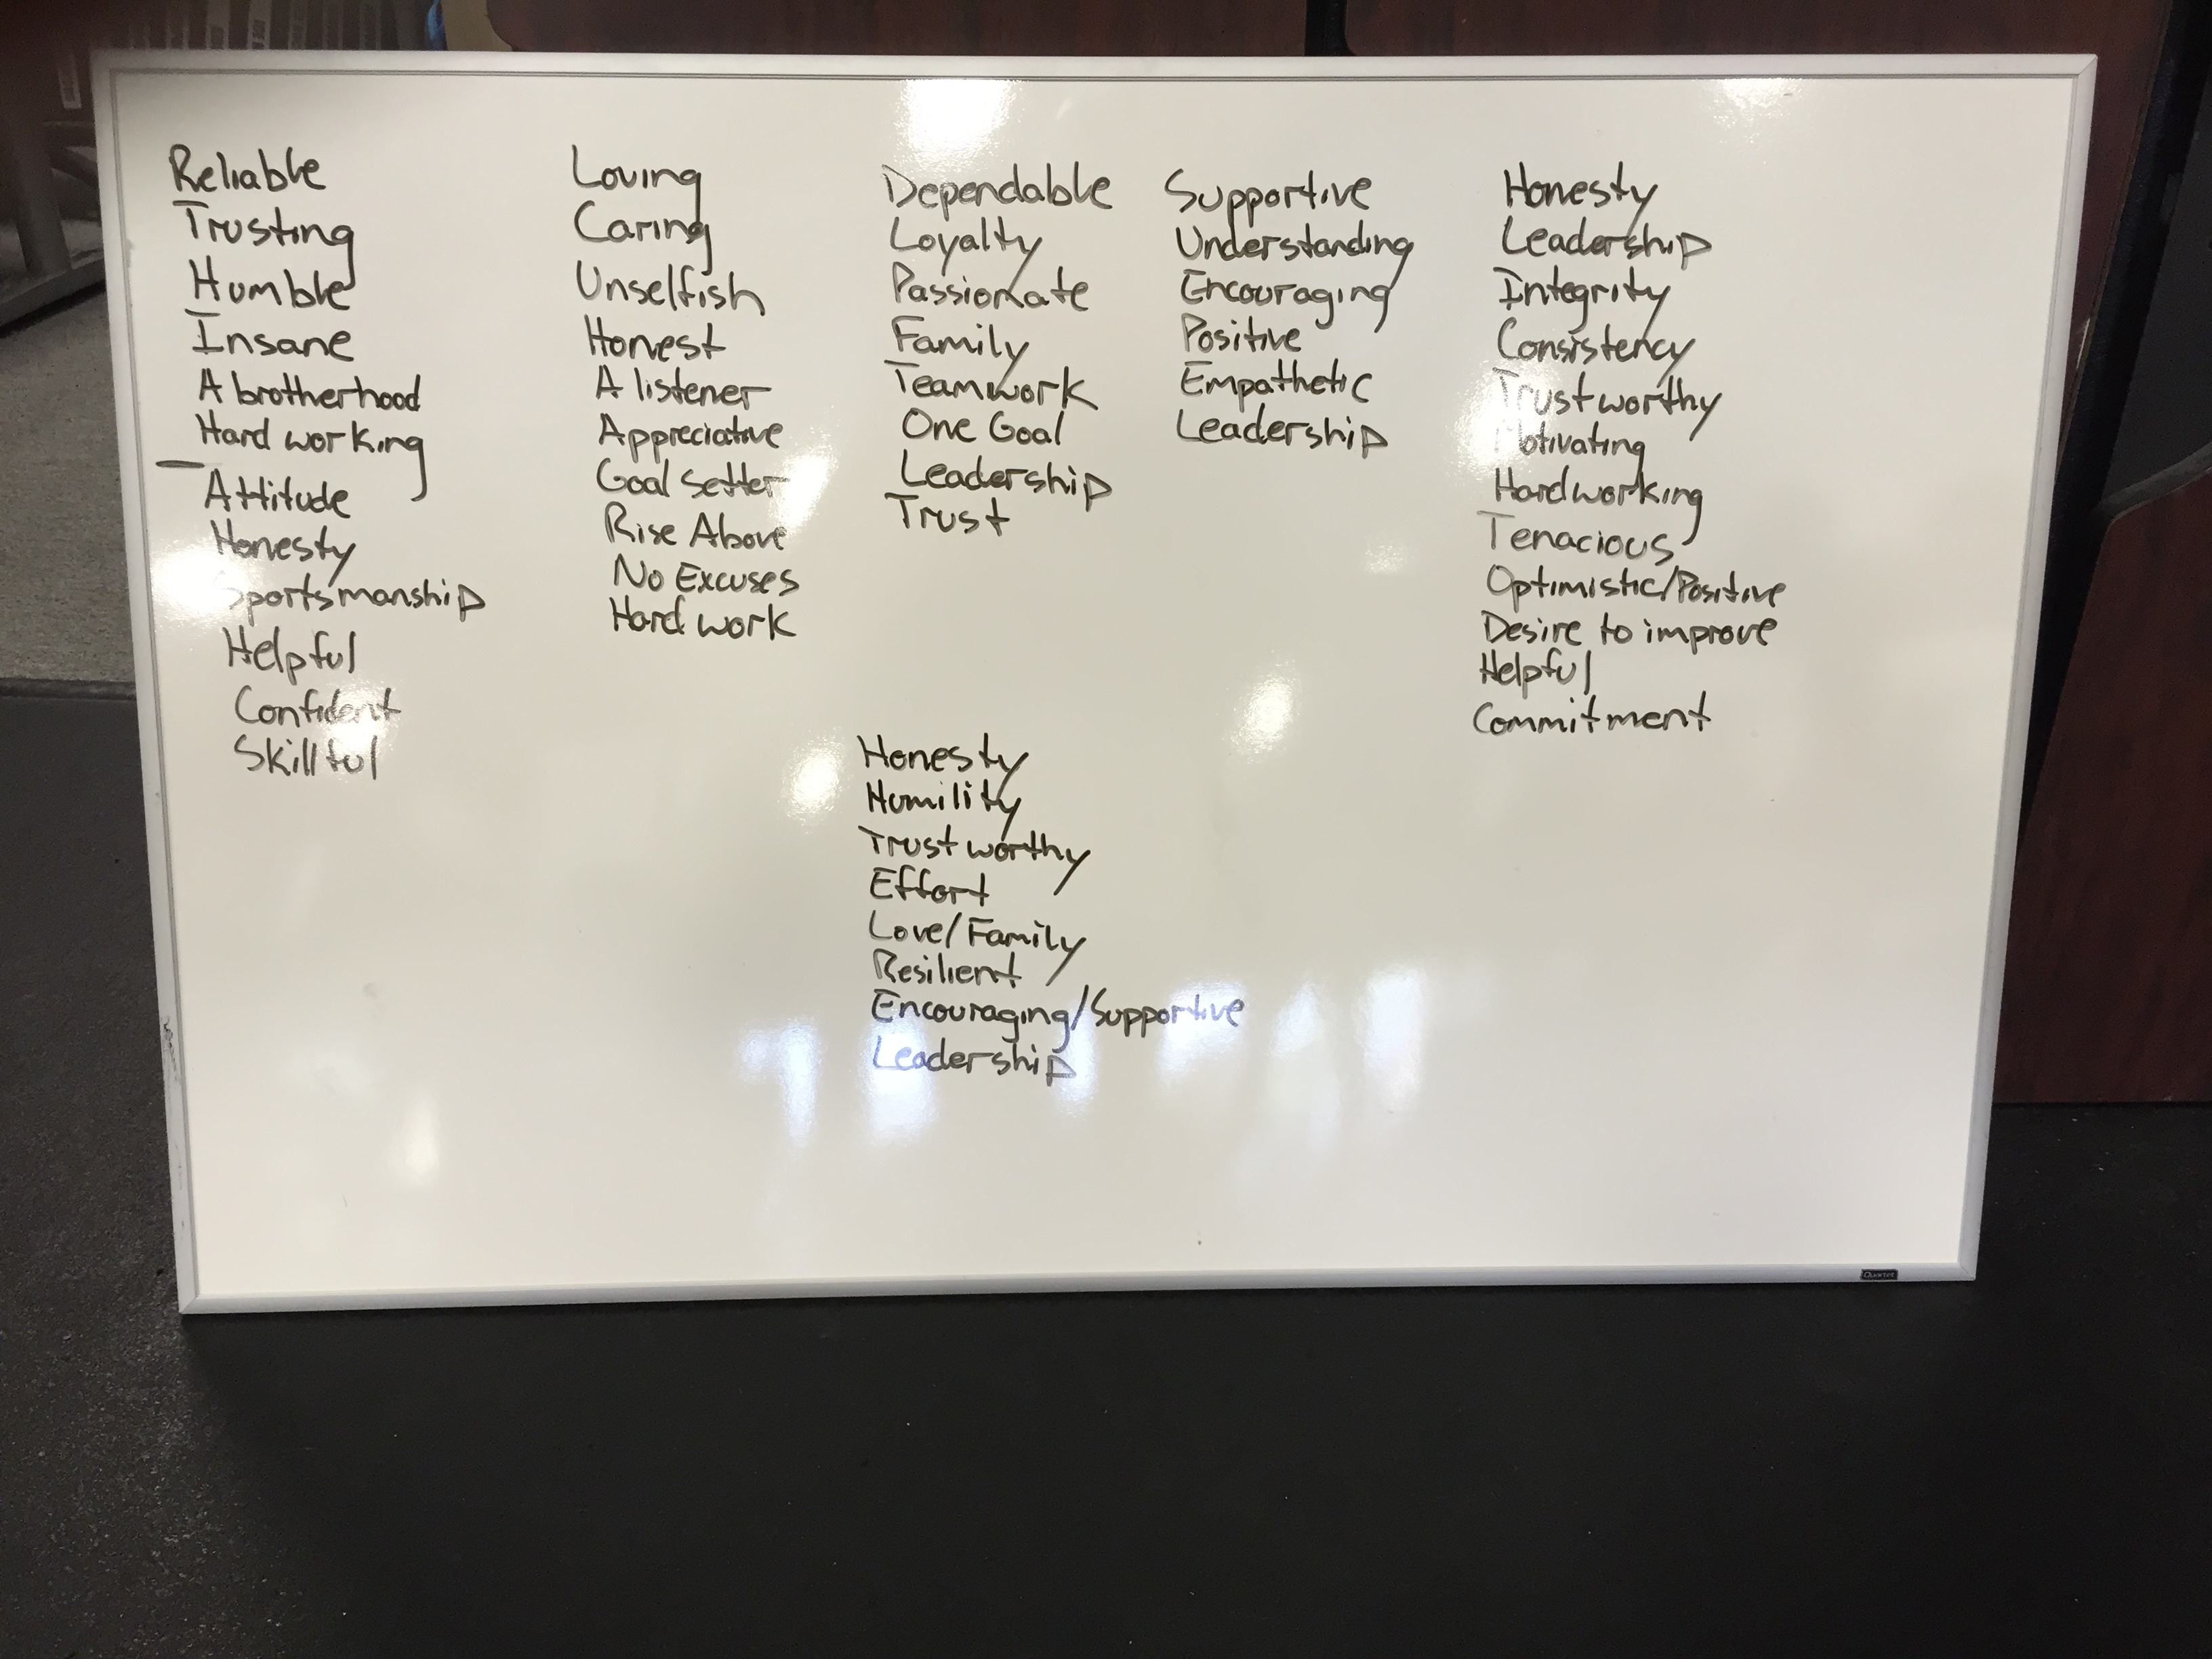 Reliable
Trusting
Humble
Insane
A brotherhood
Hard working
Attitude
Honesty
Sportsmanship
Helpful
Confident
Skillful
Loving
Caring
Unselfish
Honest
A listener
Appreciative
Goal Setter
Rise Above
No Excuses
Hard work
Dependable
Loyalty
Passionate
Family
Teamwork
One Goal
Leadership
Trust
Honesty
Humility
Trust worthy
Effort
Love/Family
Resilient
Encouraging/Supportive
Leadership
Supportive
Understanding
Encouraging
Positive
Empathetic
Leadership
Honesty
Leadership
Integrity
Consistency
Trustworthy
Motivating
Hardworking
Tenacious
Optimistic/Positive
Desire to improve
Helpful
Commitment
Quartet